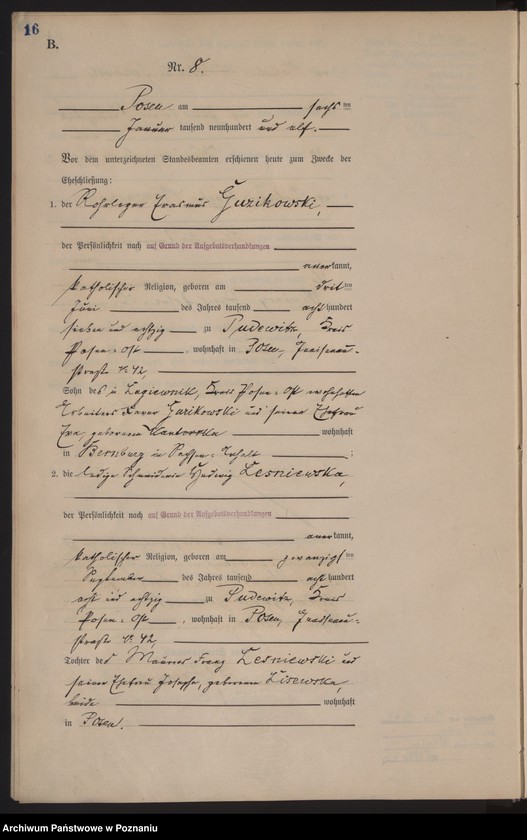 16
B.
Nr. 8.
Posen am sechsten
Januar tausend neunhundert und elf.
Vor dem unterzeichneten Standesbeamten erschienen heute zum Zwecke der
Eheschließung:
1. der Rohrleger Erasmus Guzikowski,
der Persönlichkeit nach auf Grund der Aufgebotsverhandlungen
anerkannt,
katholischer Religion, geboren am dritten
Juni des Jahres tausend achthundert
sieben und achtzig zu Pudewitz, Kreis
Posen-Ost, wohnhaft in Posen,
straße 42,
Sohn des in Lagiewnik, Kreis Posen-Ost wohnhaften
Arbeiters Guzikowski und seiner Ehefrau
Eva, geborenen Kantorska wohnhaft
in Bernburg in Sachsen-Anhalt;
2. die ledige Schneiderin Hedwig Lesniewska,
der Persönlichkeit nach auf Grund der Aufgebotsverhandlungen
anerkannt,
katholischer Religion, geboren am zwanzigsten
September des Jahres tausend achthundert
acht und achtzig zu Pudewitz, Kreis
Posen-Ost, wohnhaft in Posen,
straße 42,
Tochter des Maurers Franz Lesniewski und
seiner Ehefrau Josepha, geborenen Lisewska,
beide wohnhaft
in Posen.
Archiwum Państwowe w Poznaniu